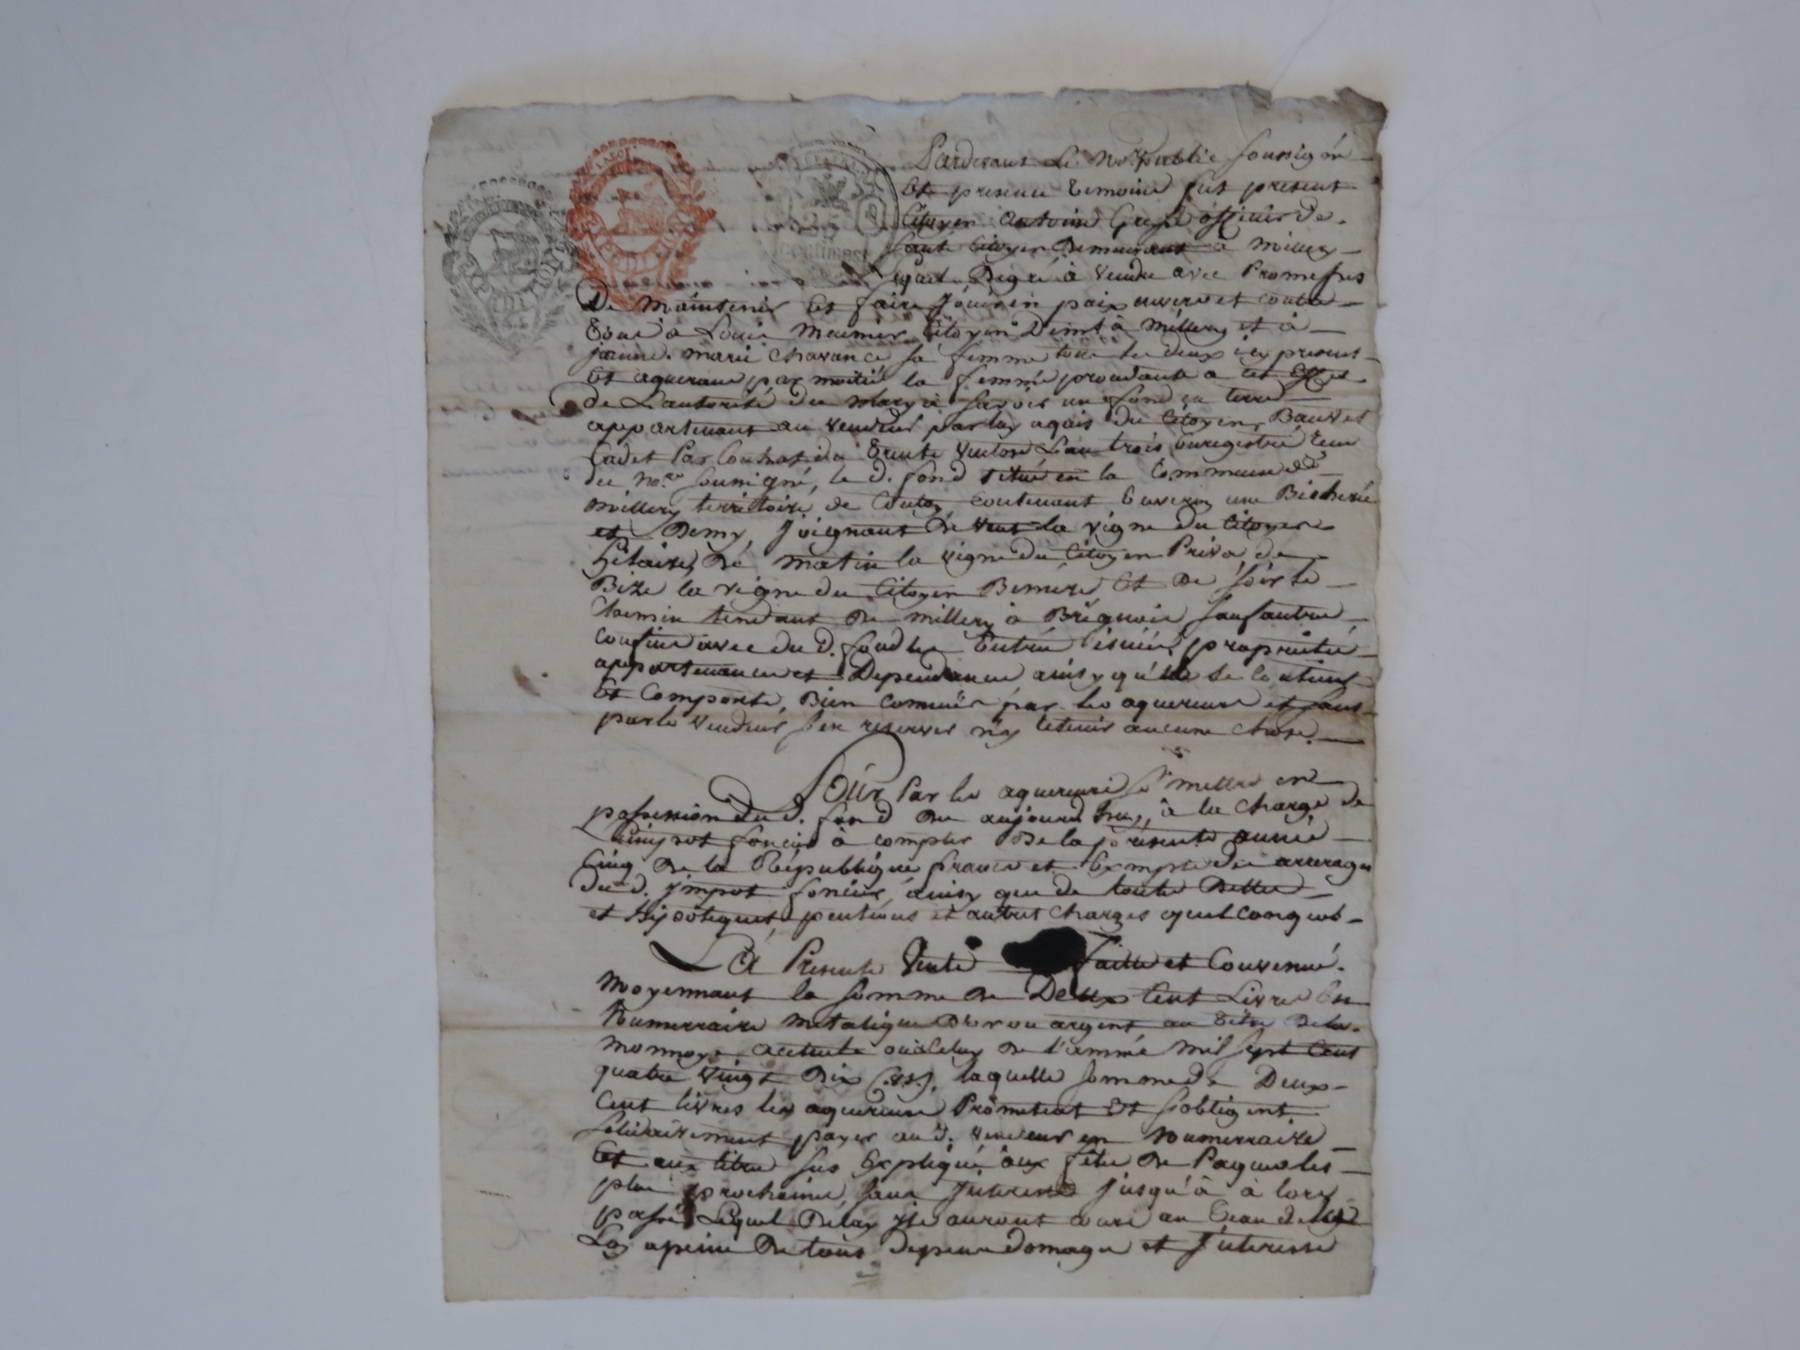 Pardevant Le No.re public soussigné
Et presence temoins fut present
Citoyen antoine officier de
santé Citoyen Demeurant a Millery
vendre avec Promesses
De maintenir Et faire Jouir en paix envers et contre
Tous a Louis Meunier Citoyen Demt à Millery et à
jeanne marie Chavance sa femme tous les deux icy present
Et aquereurs par moitié la femme procedante a cet Effet
de L'autorité du mary à savoir un fond en terre
appartenant au vendeur par luy aquis du Citoyen Bauvet
Cadet Par Contrat du Trente Ventose L'an trois Enregistré Reçu
du No.re soussigné, le d. fond situé en la Commune de
Millery territoire de contenant Environ une Bicherée
et Demy, Joignant de vent la vigne du Citoyen
Hilaire, De matin la vigne du Citoyen Priva, de
Bize la vigne du Citoyen Et De soir le
Chemin tendant De millery à Brignais sauf autre
confins avec du d. fond les Entrée issües, proprieté
appartenance et Dependance ainsy qu'il se Contient
Et Comporte, Bien Connües par les aquereurs et sans
par le Vendeur s'en reserver n'y retenir aucune Chose.
Pour Par les aquereurs se mettre en
possession du d. fond De aujourd'huy, à la Charge de
L'impot foncier à compter De la presente année
Cinq De la République france et Exempte des arrerages
du d. Jmpot foncier, ainsy que de toute Dettes
et Hypoteques pentions et autres Charges quelconques
La Presente Vente Faitte et Convenue
Moyennant la somme de Deux Cent Livres En
Numerraire Metalique D'or ou argent au titre De la
Monnoye actuelle ou a Celuy De l'année Mil sept Cent
quatre vingt Dix (v.s.), laquelle somme De Deux
Cent livres les aquereurs Promettent Et s'obligent
solidairement payer au d. Vendeur en Numerraire
Et aux titre sus Expliqué aux fête de Paques les
plus prochaines, sans Jnterest Jusqu'à à lors
passé Lequel Delay Jls auront cours au Taux de la
Loy a peine De tous depens Domage et Jnteresse